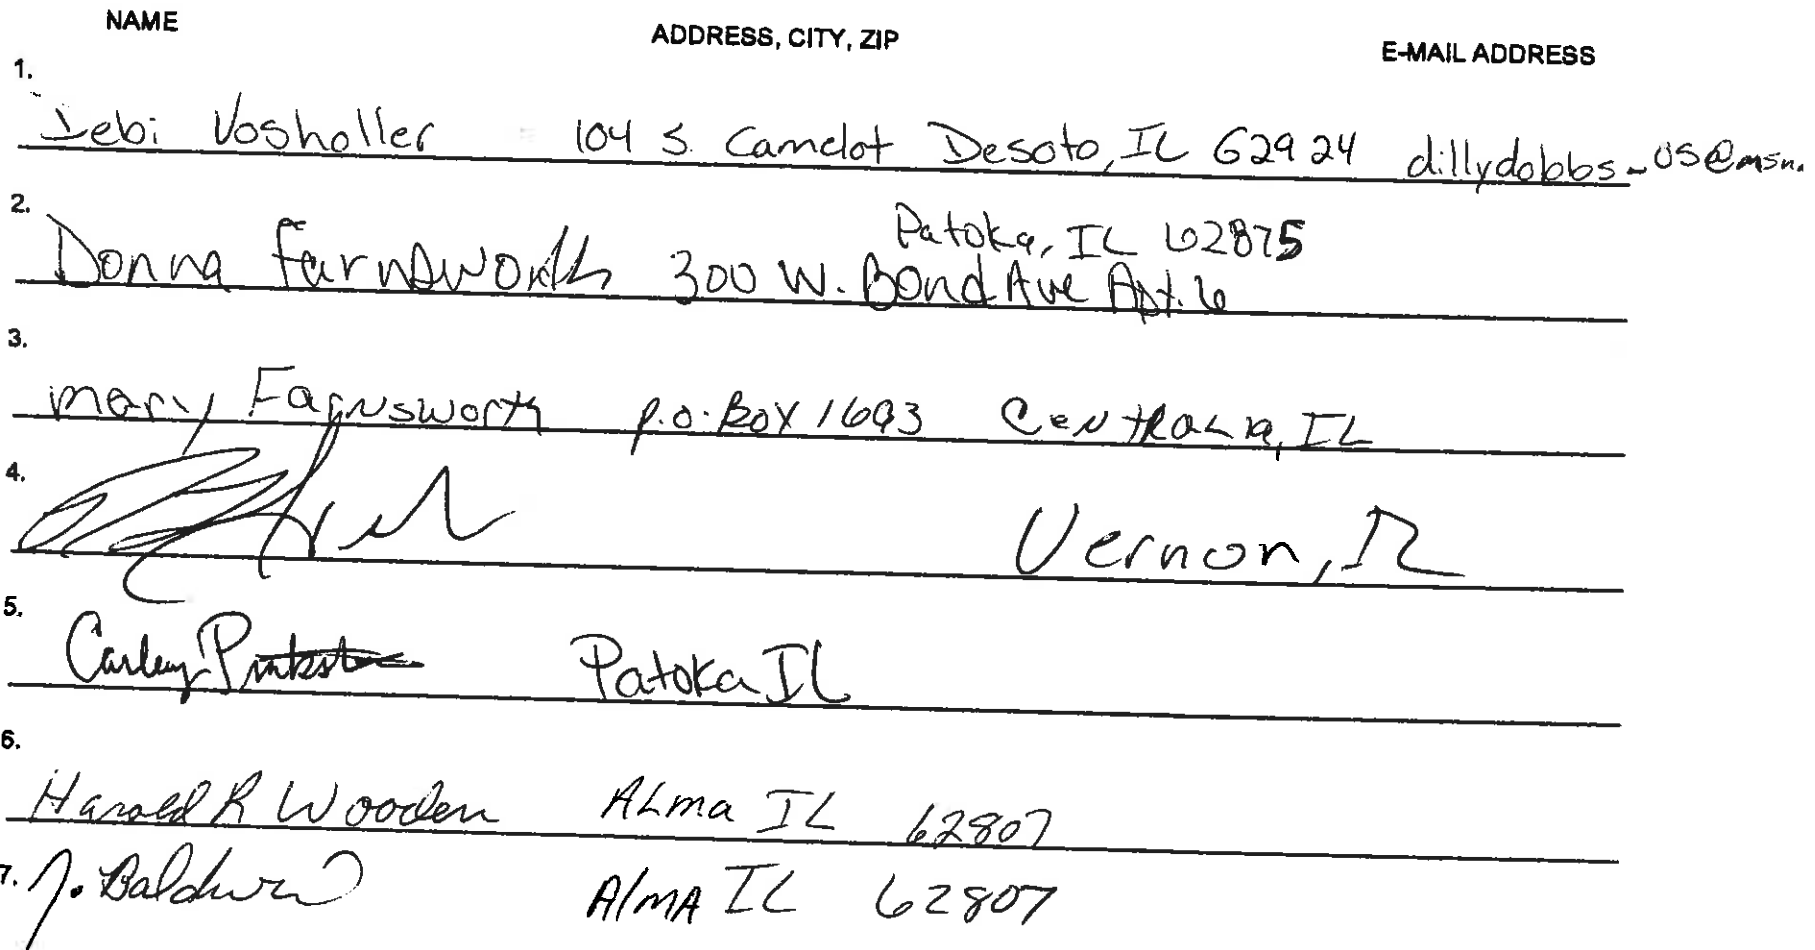 NAME ADDRESS, CITY, ZIP E-MAIL ADDRESS
1.
Debi Vosholler 104 S. Camelot Desoto, IL 62924 dillydobbs_US@msn.
2.
Patoka, IL 62875
Donna Farnsworth 300 W. Bond Ave Apt. 6
3.
Mary Farnsworth P.O. Box 1693 Centralia, IL
4.
Vernon, IL
5.
Carley Patoka IL
6.
Harold R Wooden ALma IL 62807
7. J. Baldwin AlmA IL 62807